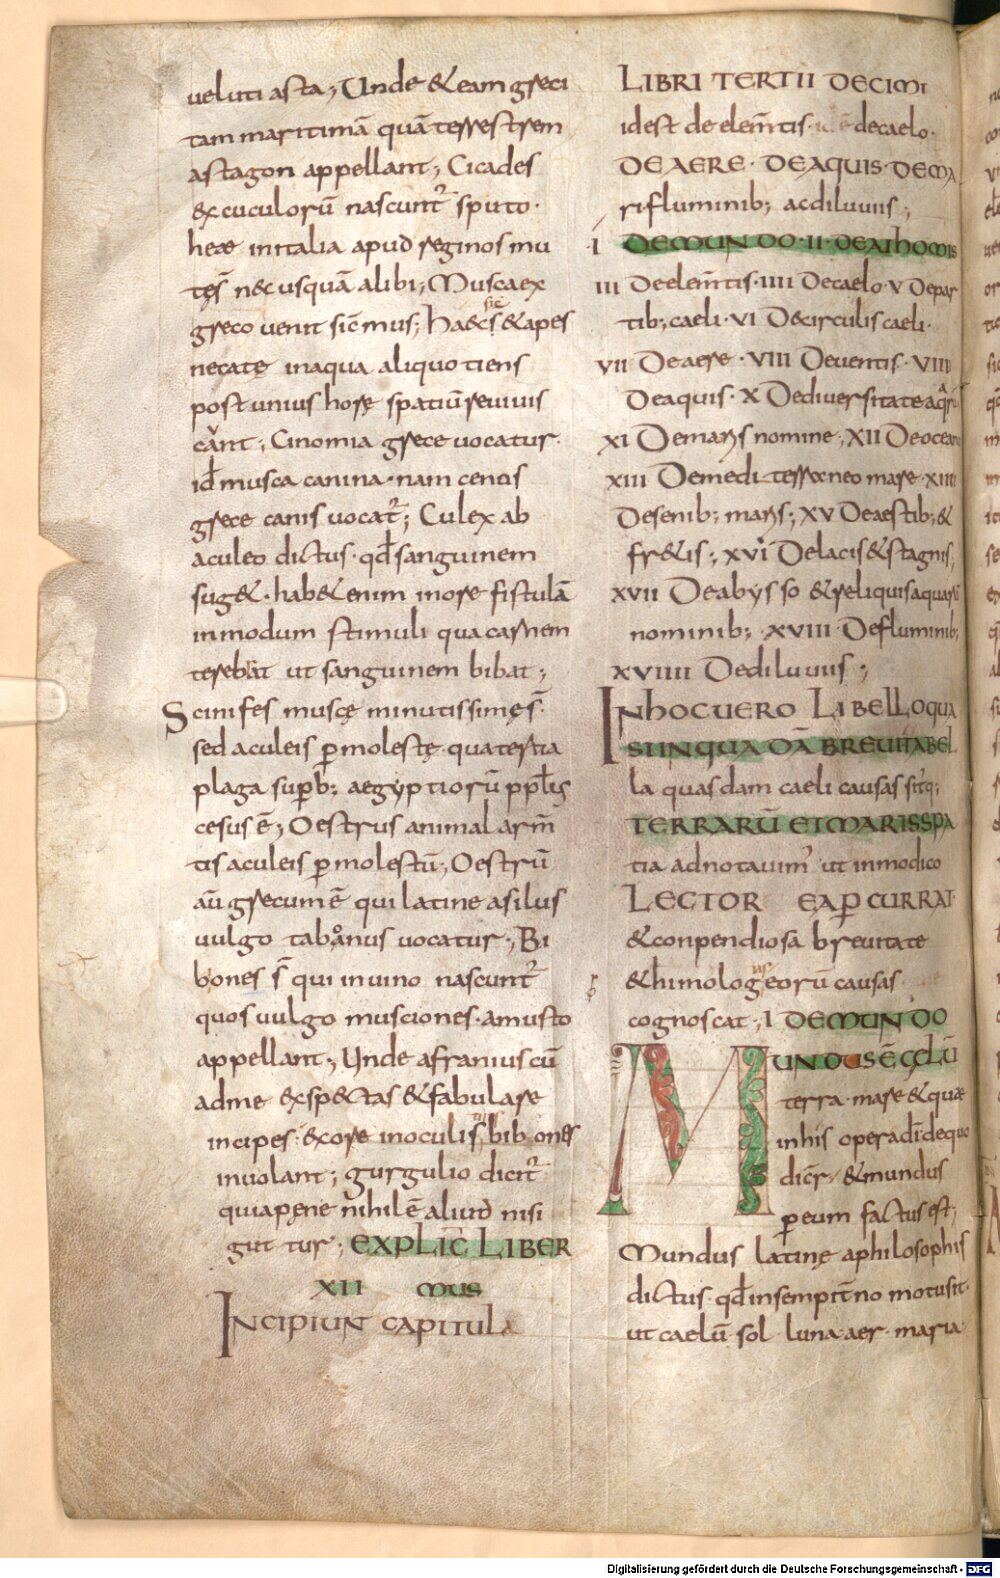 ueluti asta; Unde & eam greci
tam maritimā quā terrestrem
astagon appellant; Cicades
ex cuculorū nascunt᷑ sputo·
heae in italia apud reginos mu
tęs̄ nec usquā alibi; Musca ex
greco uenit sic̄ mus; haec s̄ & apes
necatę in aqua aliquotiens
post unius horę spatiū reuiuis
cant; Cinomia grece uocatur·
id̄ musca canina· nam cenos
grece canis uocat᷑; Culex ab
aculeo dictus· qd̄ sanguinem
sug&· hab& enim in ore fistulā
in modum stimuli qua carnem
terebat ut sanguinem bibat;
Scinifes muscę minutissimę s̄·
sed aculeis ꝑmolestę· qua tertia
plaga suꝑb; aegyptiorū ppl̄s
cesus ē; Oestrus animal arm̄
tis aculeis ꝑmolestū; Oestrū
aū grecum ē qui latine asilus
uulgo tabanus uocatur; Bi
bones s̄ qui in uino nascunt᷑
quos uulgo musciones· a musto
appellant; Unde afranius cū
ad me exspectas & fabulare
incipes· ex ore in oculis bibones
inuolant; gurgulio dicit᷑
quia pene nihil ē aliud nisi
guttur; EXPLIC̄ LIBER
XII MUS
INCIPIUN CAPITULA
LIBRI TERTII DECIMI
idest de elem̄tis· de caelo·
DE AERE· DE AQUIS· DE MA
ri fluminib; ac diluuiis;
I DE MUNDO· II· DE ATHOMIS
III De elem̄tis· IIII De caelo· V De par
tib; caeli· VI De circulis caeli·
VII De aere· VIII De uentis· VIIII
De aquis· X De diuersitate aq̄ru
XI De maris nomine; XII De ocean
XIII De mediterraneo mare· XIIII
De senib; maris; XV De aestib; &
fr&is; XVI De lacis & stagnis,
XVII De abysso & reliquis aquarū
nominib; XVIII· De fluminib;
XVIIII De diluuiis;
IN HOC UERO LIBELLO QUA
SI IN QUADĀ BREUI TABEL
la quasdam caeli causas sitq;
TERRARŪ ET MARIS SPA
tia adnotauim᷒ ut in modico
LECTOR EA PERCURRAT
& conpendiosa breuitate
&himologeorū causas
cognoscat; I DE MUNDO
MUNDUS Ē CELŪ
terra· mare & quae
in his opera dī· de quo
dicr̄· & mundus
ꝑ eum factus est;
Mundus latinę a philosophis
dictus· qd̄ in sempit̄no motu sit·
ut caelū· sol luna· aer· maria·
Digitalisierung gefördert durch die Deutsche Forschungsgemeinschaft - DFG